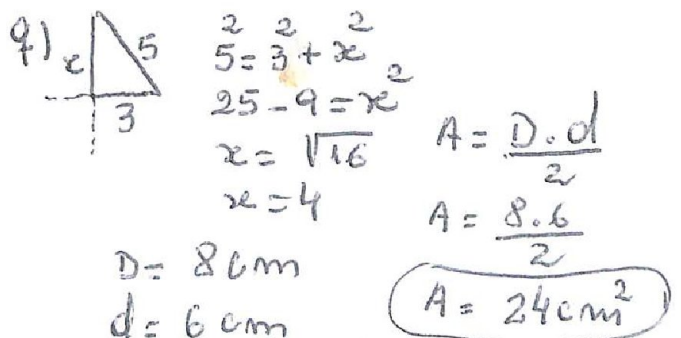 9)
x 5
3
5² = 3² + x²
25 - 9 = x²
x = √16
x = 4
D = 8 cm
d = 6 cm
A = D.d/2
A = 8.6/2
A = 24 cm²